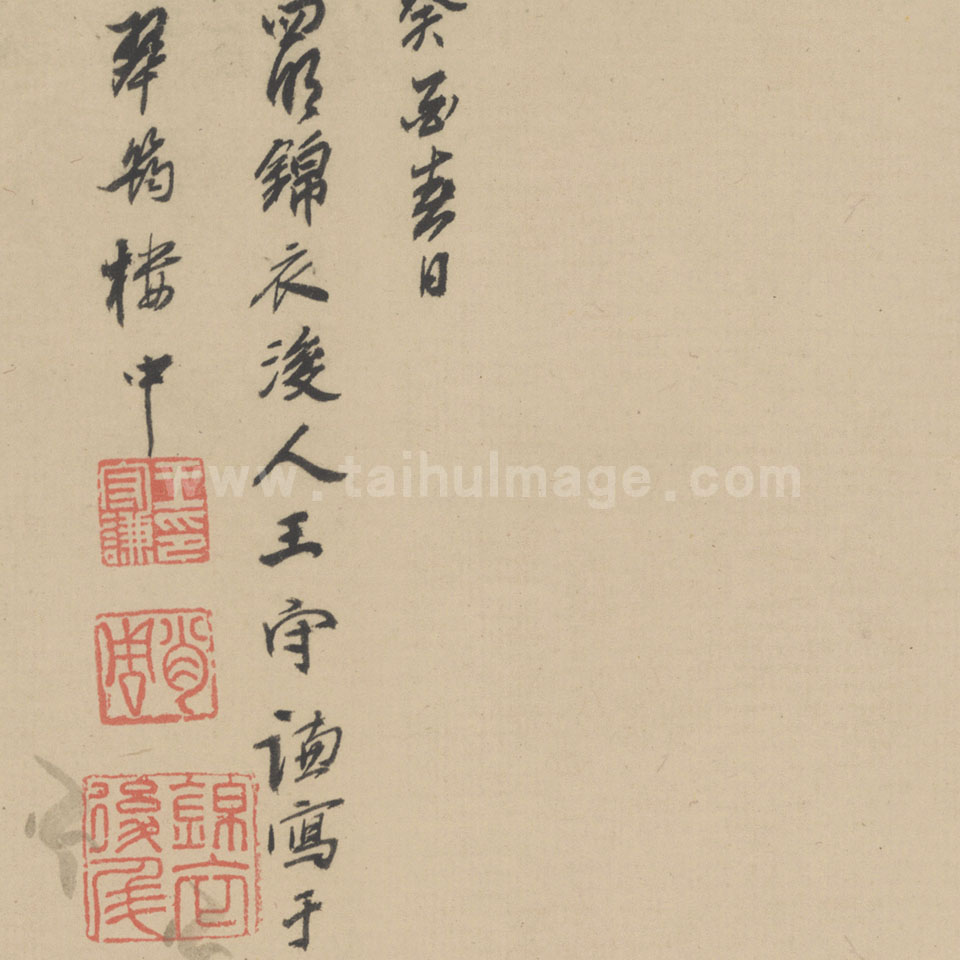 癸酉春日
四明錦衣後人王守謙寫于
翠筠樓中
王印守謙
錦衣後
www.taihuImage.com